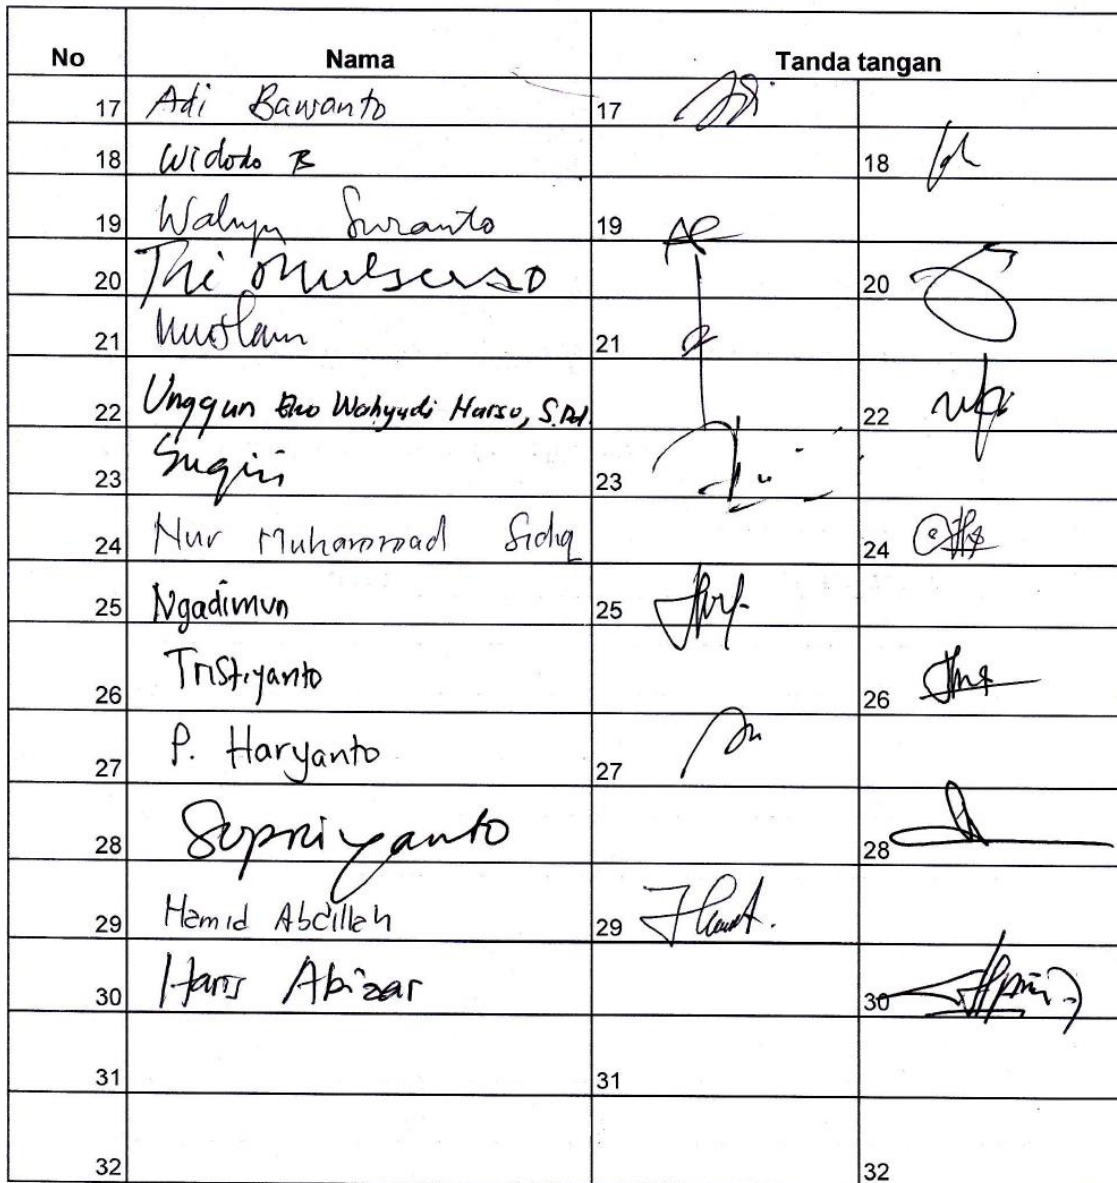 No Nama Tanda tangan
17 Adi Bawanto 17
18 Widodo B 18
19 Wahyu Suranto 19
20 Tri 20
21 21
22 Unggun Eko Wahyudi Harso, S.Pd. 22
23 Sugiri 23
24 Nur Muhammad Sidiq 24
25 Ngadimun 25
26 Tristiyanto 26
27 P. Haryanto 27
28 Supriyanto 28
29 Hamid Abdillah 29
30 Haris Abizar 30
31 31
32 32